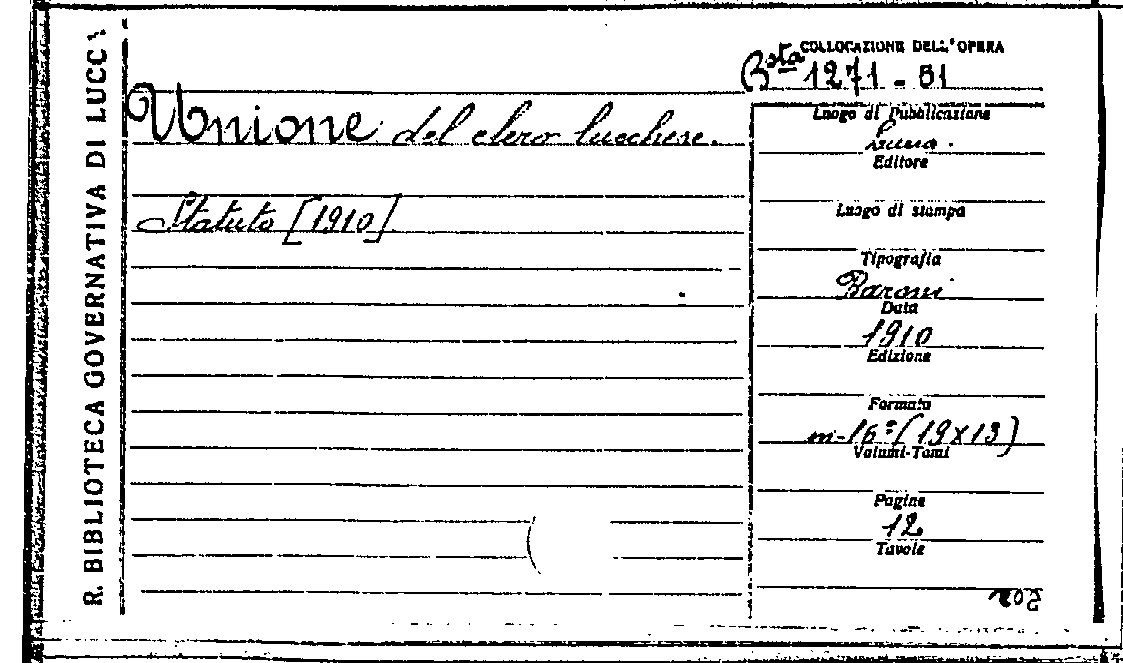 R. BIBLIOTECA GOVERNATIVA DI LUCCA
COLLOCAZIONE DELL'OPERA
Bsta 1271-51
Unione del clero lucchese.
Statuto [1910]
Luogo di Pubblicazione
Lucca.
Editore
Luogo di stampa
Tipografia
Baroni
Data
1910
Edizione
Formato
in-16° (19x13)
Volumi-Tomi
Pagine
12
Tavole